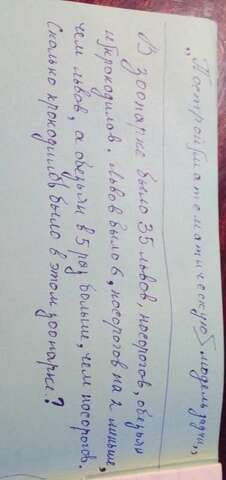 „Построй математическую модель задачи„
В зоопарке было 35 львов, носорогов, обезьян
и крокодилов. Львов было 6, носорогов на 2 меньше,
чем львов, а обезьян в 5 раз больше, чем носорогов.
Сколько крокодилов было в этом зоопарке?